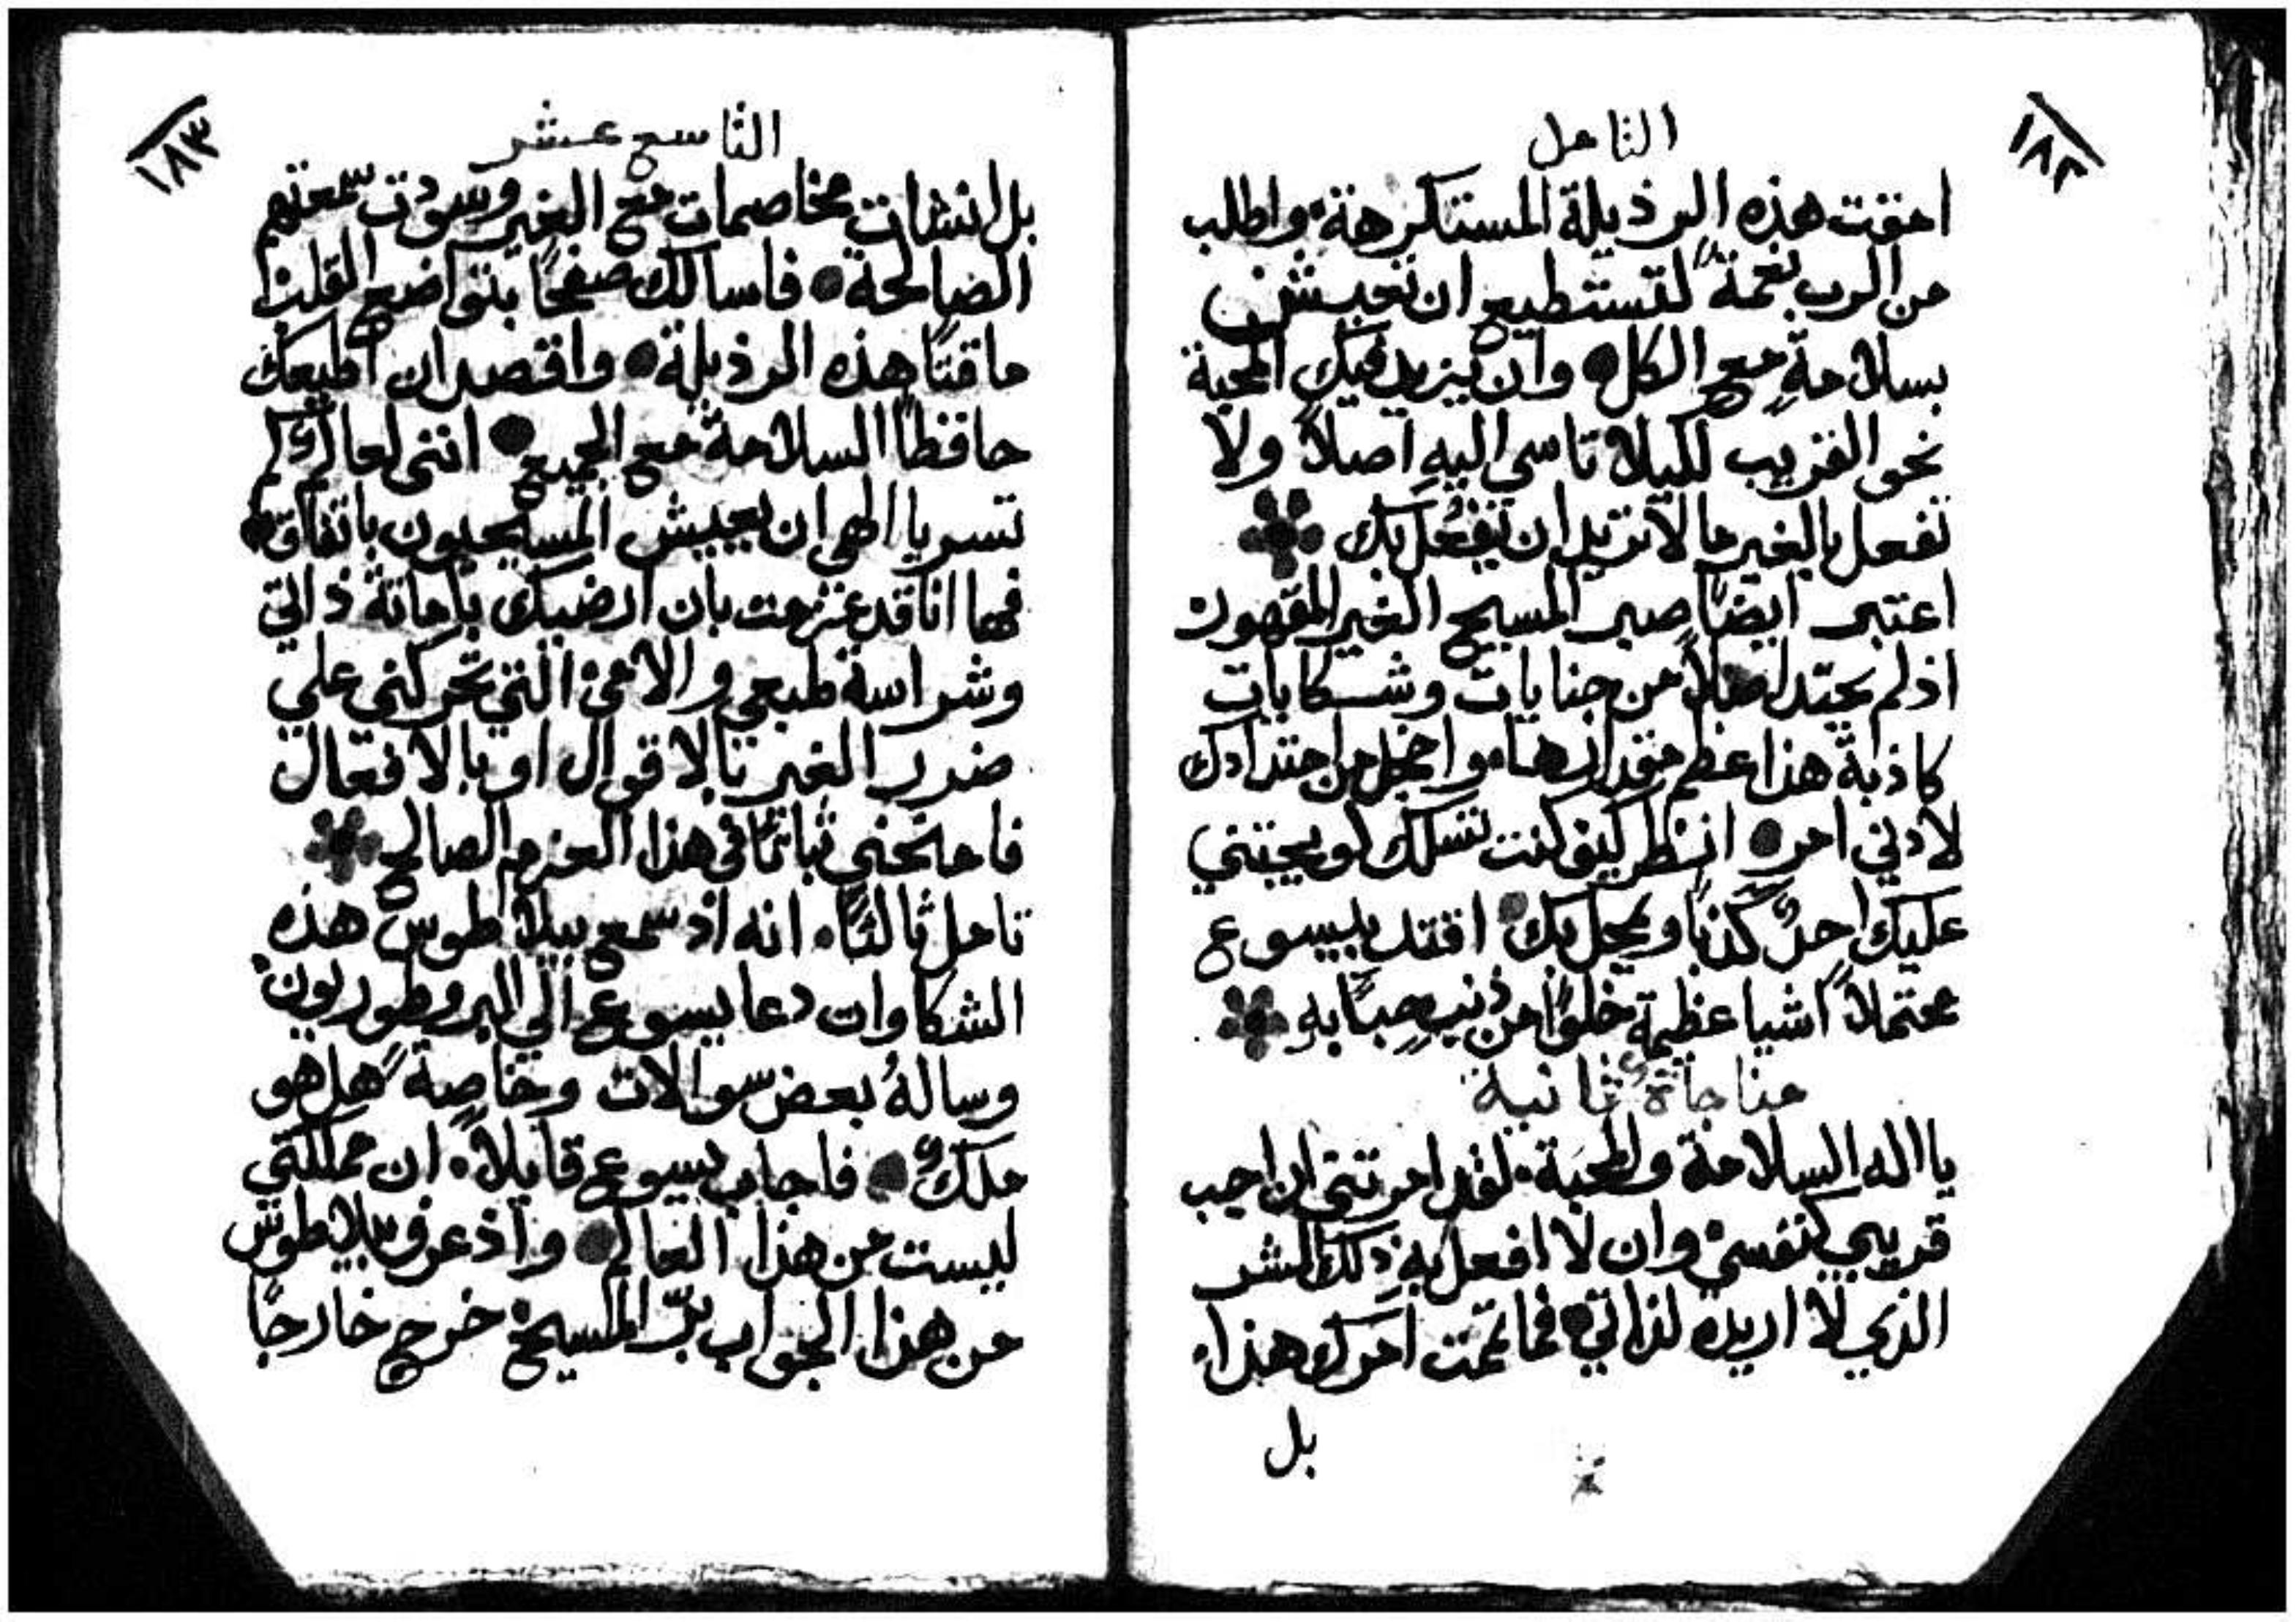 ١٨٢
التامل
امقت هذه الرذيلة المستكرهة٠ واطلب
من الرب نعمةً لتستطيع ان تعيش
بسلامةٍ مع الكل● وان يزيد فيك المحبة
نحو القريب لكيلا تاسي اليهِ اصلاً ولا
تفعل بالغير ما لا تريد ان يُفعَل بك
اعتبر ايضًا صبر المسيح الغير المقهور
اذ لم يحتد اصلاً من جنايات وشكايات
كاذبة هذا عظم مقدارها٠ واخجل من احتدادك
لادني امر● انظر كيف كنت تسلك لو يجتني
عليك احدٌ كذبًا ويمحل بك● اقتد بيسوع
محتملاً اشيا عظيمة خلوًا من ذنبٍ حبًا بهِ
مناجاةٌ ثانية
يا اله السلامة والمحبة٠ لقد امرتني ان احب
قريبي كنفسي٠ وان لا افعل بهِ ذلك الشر
الذي لا اريده لذاتي● فما تممت امرك هذا٠
بل
١٨٣
التاسع عشر
بل انشات مخاصمات مع الغير وسودت سمعتهم
الصالحة● فاسالك صفحًا بتواضع القلب
ماقتًا هذه الرذيلة● واقصد ان اطيعك
حافظًا السلامة مع الجميع● انني لعالمٌ كم
تسر يا الهي ان يعيش المسيحيون باتفاق●
فها انا قد عزمت بان ارضيك باماتة ذاتي
وشراسة طبعي والامي٠ التي تحركني علي
ضرر الغير بالاقوال او بالافعال
فامنحني ثباتًا في هذا العزم الصالح
تامل ثالثًا٠ انه اذ سمع بيلاطوس هذه
الشكاوات دعا يسوع الي البروطوريون٠
وسالهُ بعض سوالات وخاصةً هل هو
ملكٌ● فاجاب يسوع قايلاً٠ ان مملكتي
ليست من هذا العالم● واذ عرف بيلاطوس
من هذا الجواب برّ المسيح٠ خرج خارجًا